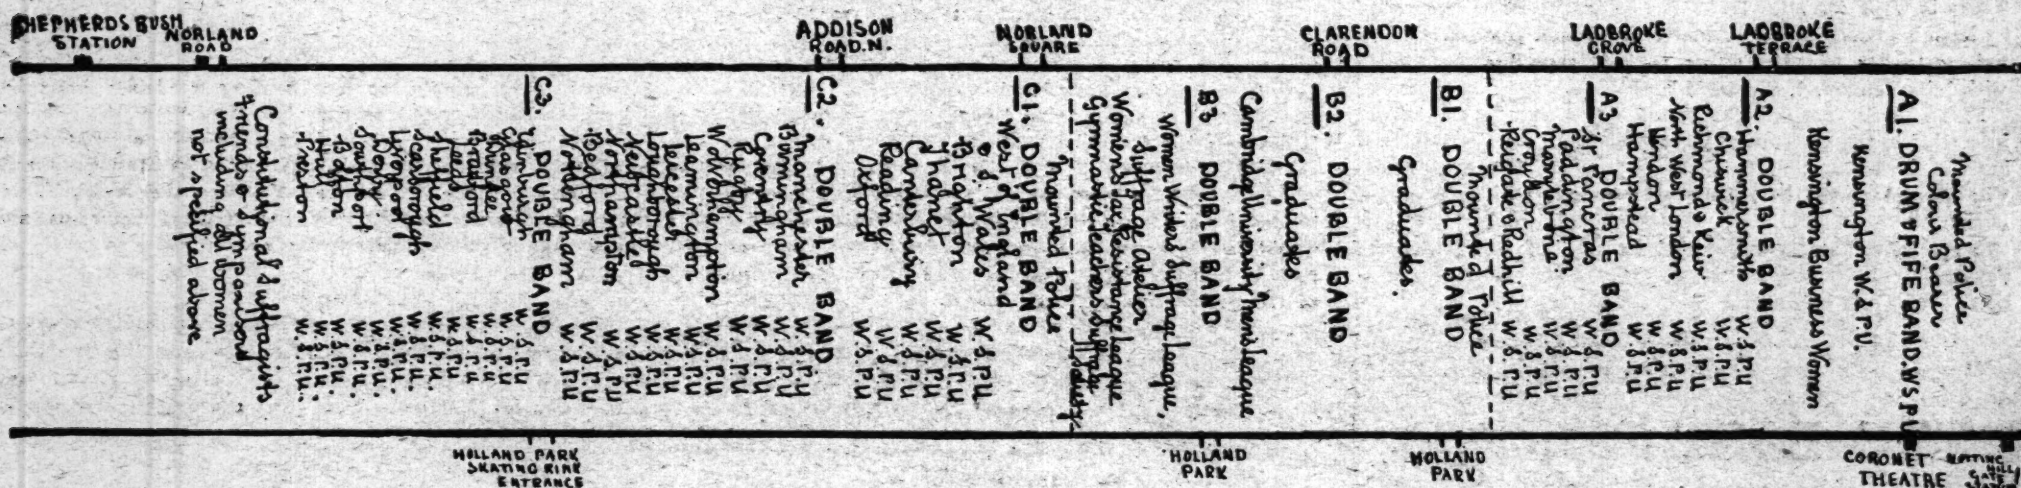 SHEPHERDS BUSH
STATION
NORLAND
ROAD
ADDISON
ROAD. N.
NORLAND
SQUARE
CLARENDON
ROAD
LADBROKE
GROVE
LADBROKE
TERRACE
Mounted Police
Colour Bearer
A1. DRUM & FIFE BAND. W.S.P.U
Kensington W.S.P.U.
Kensington Business Women
A2. DOUBLE BAND
Hammersmith W.S.P.U
Chiswick W.S.P.U
Richmond & Kew W.S.P.U
North West London W.S.P.U
Hendon W.S.P.U
Hampstead W.S.P.U
A3 DOUBLE BAND
St Pancras W.S.P.U
Paddington W.S.P.U
Marylebone W.S.P.U
Croydon W.S.P.U
Reigate & Redhill W.S.P.U
Mounted Police
B1. DOUBLE BAND
Graduates.
B2. DOUBLE BAND
Graduates
Cambridge University Mens League
B3 DOUBLE BAND
Women Writers Suffrage League,
Suffrage Atelier
Womens Tax Resistance League
Gymnastic Teachers Suffrage Society
Mounted Police
C1. DOUBLE BAND
West of England
& S. Wales W.S.P.U
Brighton W.S.P.U
Thanet W.S.P.U
Canterbury W.S.P.U
Reading W.S.P.U
Oxford W.S.P.U
C2. DOUBLE BAND
Manchester W.S.P.U
Birmingham W.S.P.U
Coventry W.S.P.U
Rugby W.S.P.U
Wolverhampton W.S.P.U
Leamington W.S.P.U
Leicester W.S.P.U
Loughborough W.S.P.U
Newcastle W.S.P.U
Northampton W.S.P.U
Bedford W.S.P.U
Nottingham W.S.P.U
C3. DOUBLE BAND
Edinburgh W.S.P.U
Glasgow W.S.P.U
Dundee W.S.P.U
Bradford W.S.P.U
Leeds W.S.P.U
Sheffield W.S.P.U.
Scarborough W.S.P.U.
Liverpool W.S.P.U.
Southport W.S.P.U.
Bolton W.S.P.U.
Hull W.S.P.U.
Preston W.S.P.U.
Constitutional Suffragists
Friends & Sympathisers
including all women
not specified above
HOLLAND PARK
SKATING RINK
ENTRANCE
HOLLAND
PARK
HOLLAND
PARK
CORONET
THEATRE
NOTTING
HILL
GATE